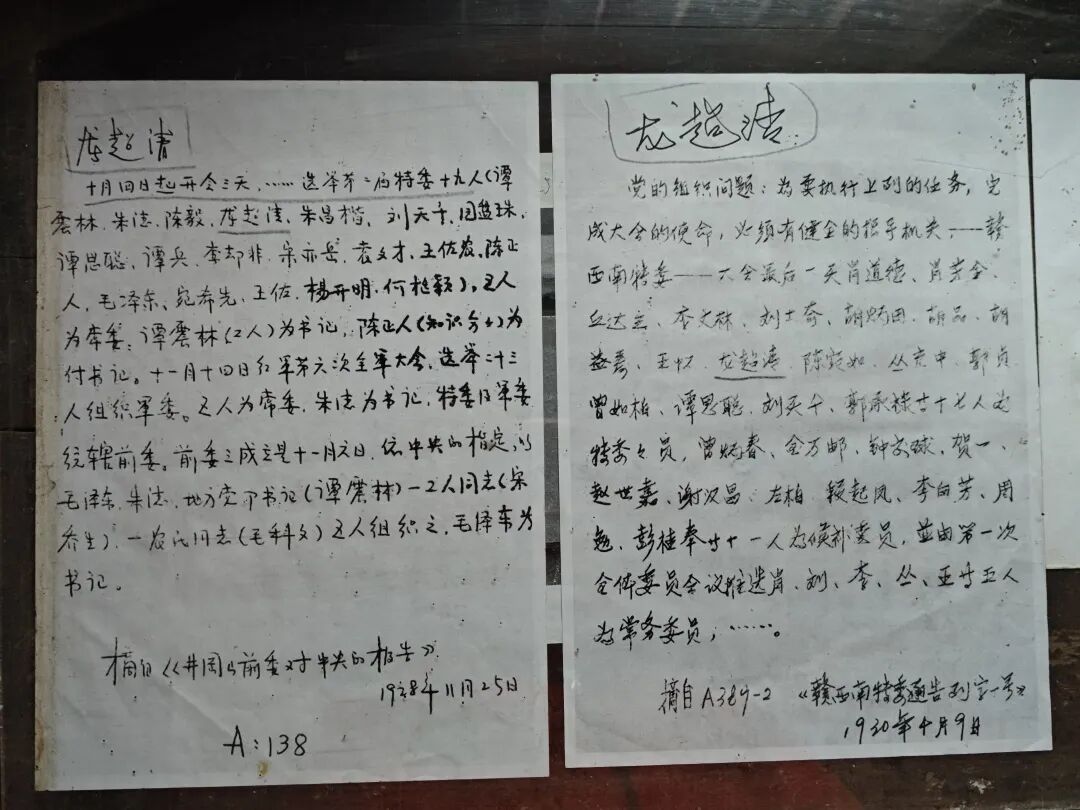 龙超清
十月四日起开会三天,……选举第二届特委十九人(谭
震林、朱德、陈毅、龙超清、朱昌楷、刘天干、园盘珠、
谭思聪、谭兵、李却非、宋亦岳、袁文才、王佐农、陈正
人、毛泽东、宛希先、王佐、杨开明、何挺颖)。五人
为常委;谭震林(工人)为书记,陈正人(知识分子)为
付书记。十一月十四日红军第六次全军大会,选举二十三
人组织军委。五人为常委,朱德为书记,特委及军委
统辖前委。前委之成立是十一月六日,依中央的指定,以
毛泽东、朱德、地方党部书记(谭震林)一工人同志(宋
乔生)、一农民同志(毛科文)五人组织之,毛泽东为
书记。
摘自《井冈山前委对中央的报告》
1928年11月25日
A:138
龙超清
党的组织问题:为要执行上列的任务,完
成大会的使命,必须有健全的指导机关——赣
西南特委——大会最后一天肖道德、肖芳全、
丘达三、李文林、刘士奇、胡炳田、胡品、胡
益寿、王怀、龙超清、陈宛如、丛允中、郭贞、
曾如柏、谭思聪、刘天干、郭承禄廿十七人为
特委委员,曾炳春、金万邦、钟文球、贺一、
赵世嘉、谢汉昌、左柏、段起凤、李白芳、周
勉、彭桂奉廿十一人为候补委员,並由第一次
全体委员会议推选肖、刘、李、丛、王廿五人
为常务委员;……。
摘自A389-2 《赣西南特委通告列字一号》
1930年4月9日